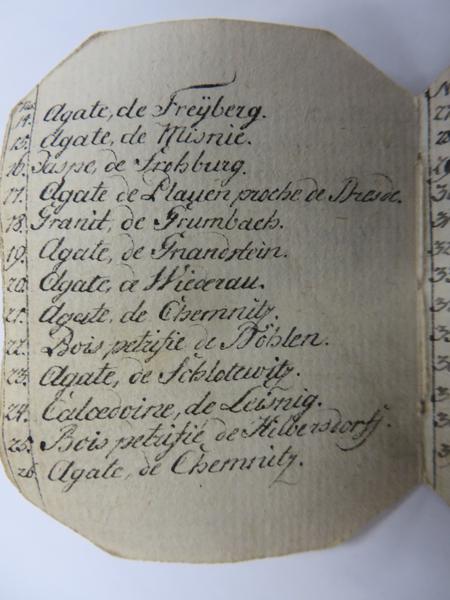 14. Agate, de Freÿberg.
15. Agate, de Misnie.
16. Jaspe, de Frohburg.
17. Agate de Plauen proche de Dresde.
18. Granit, de Grumbach.
19. Agate, de Gnandstein.
20. Agate, de Wiederau.
21. Agate, de Chemnitz.
22. Bois petrifie de Döhlen.
23. Agate, de Schlotewitz.
24. Calcedoine, de Leisnig.
25. Bois petrifié de Hilbersdorf.
26. Agate, de Chemnitz.
27